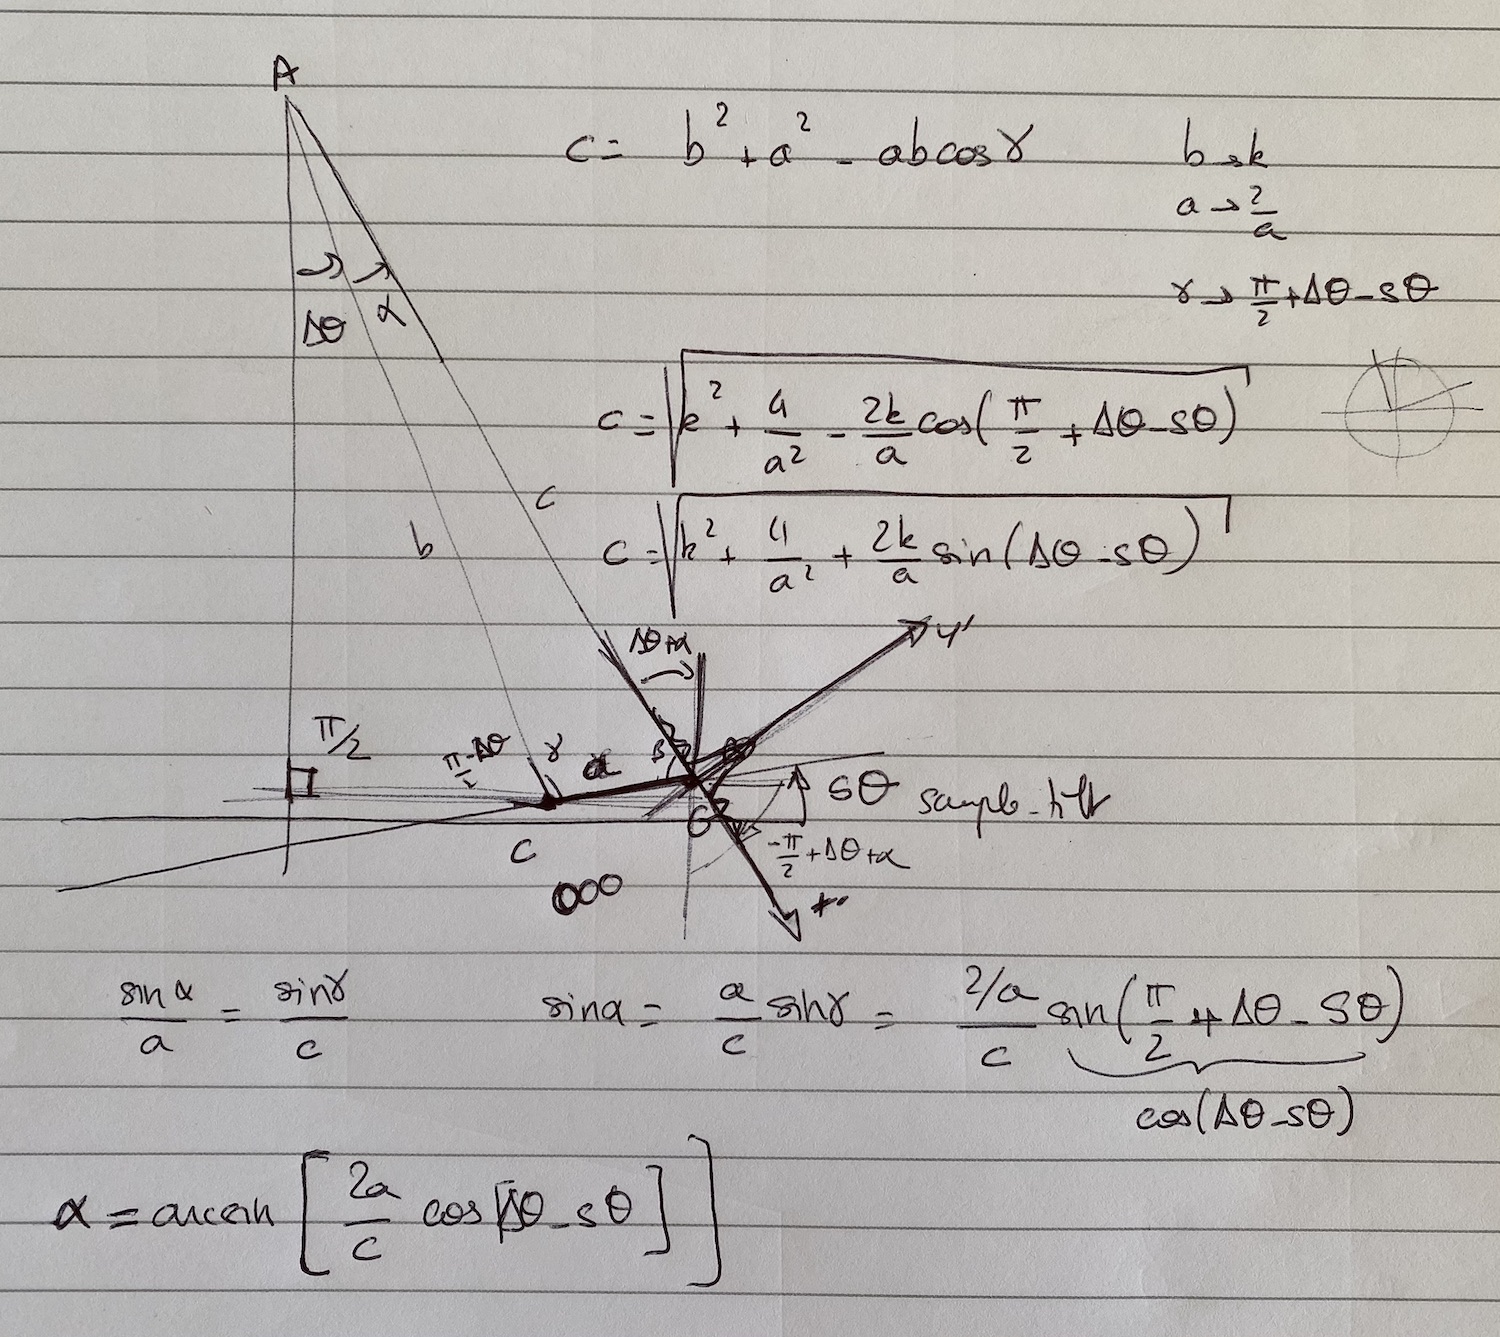 A
c = b² + a² - ab cosγ
b → k
a → 2/a
γ → π/2 + Δθ - sθ
Δθ
α
c = √(k² + 4/a² - 2k/a cos(π/2 + Δθ - sθ))
c
c = √(k² + 4/a² + 2k/a sin(Δθ - sθ))
b
Δθ+α
y'
π/2
π/2 - Δθ
γ
a
B
sθ sample-tilt
G
C
-π/2 + Δθ + α
000
sinα/a = sinγ/c
sinα = a/c sinγ = 2/a/c sin(π/2 + Δθ - sθ)
cos(Δθ - sθ)
α = arcsin [2a/c cos[Δθ - sθ]]